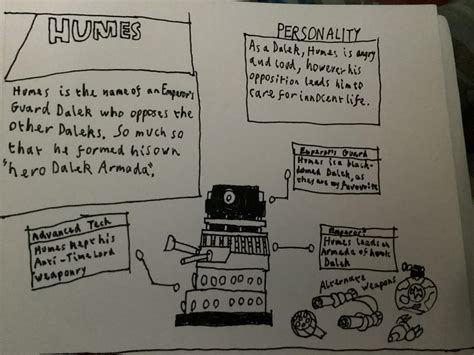 HUMES
Humes is the name of an Emperor's
Guard Dalek who opposes the
other Daleks. So much so
that he formed his own
"hero Dalek Armada".
PERSONALITY
As a Dalek, Humes is angry
and loud, however his
opposition leads him to
care for innocent life.
Emperor's Guard
Humes is a black-
domed Dalek, as
they are my favourite
Advanced Tech
Humes kept his
Anti-Time Lord
weaponry
Emperor?
Humes leads an
Armada of heroic
Dalek
Alternate
weapons